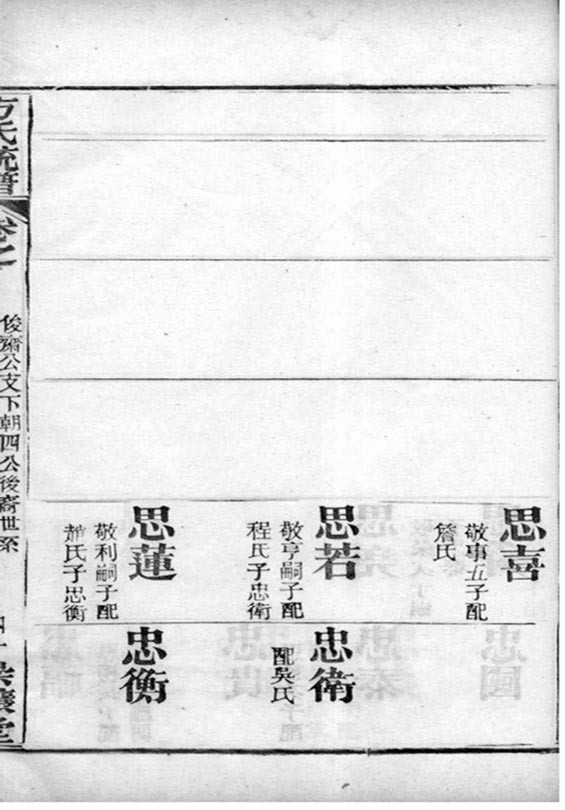 思喜
敬事五子配
詹氏
思若
敬亨嗣子配
程氏子忠衛
思蓮
敬利嗣子配
氏子忠衡
忠衛
配吳氏
忠衡
方氏統譜
卷之
俊齋公支下朝四公後裔世系
堂